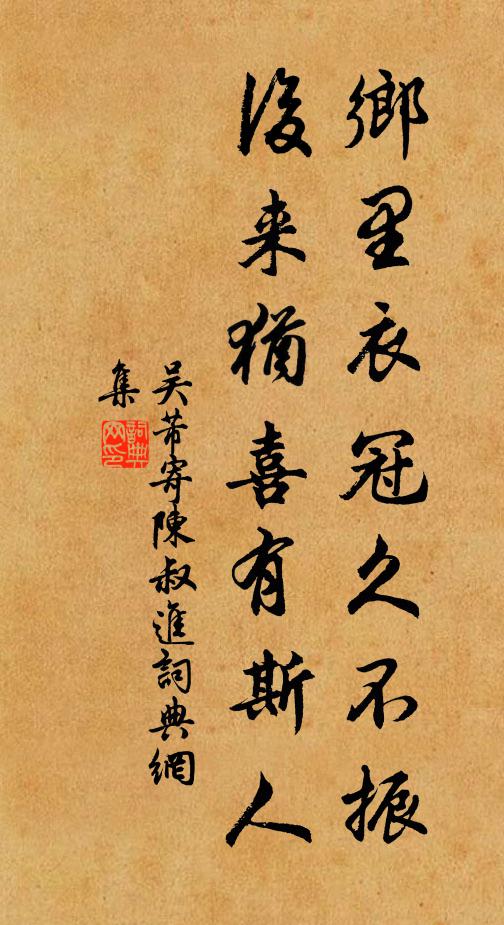 鄉里衣冠久不振
後来猶喜有斯人
吴芾寄陳叔進詞典網
集
詞典
网印